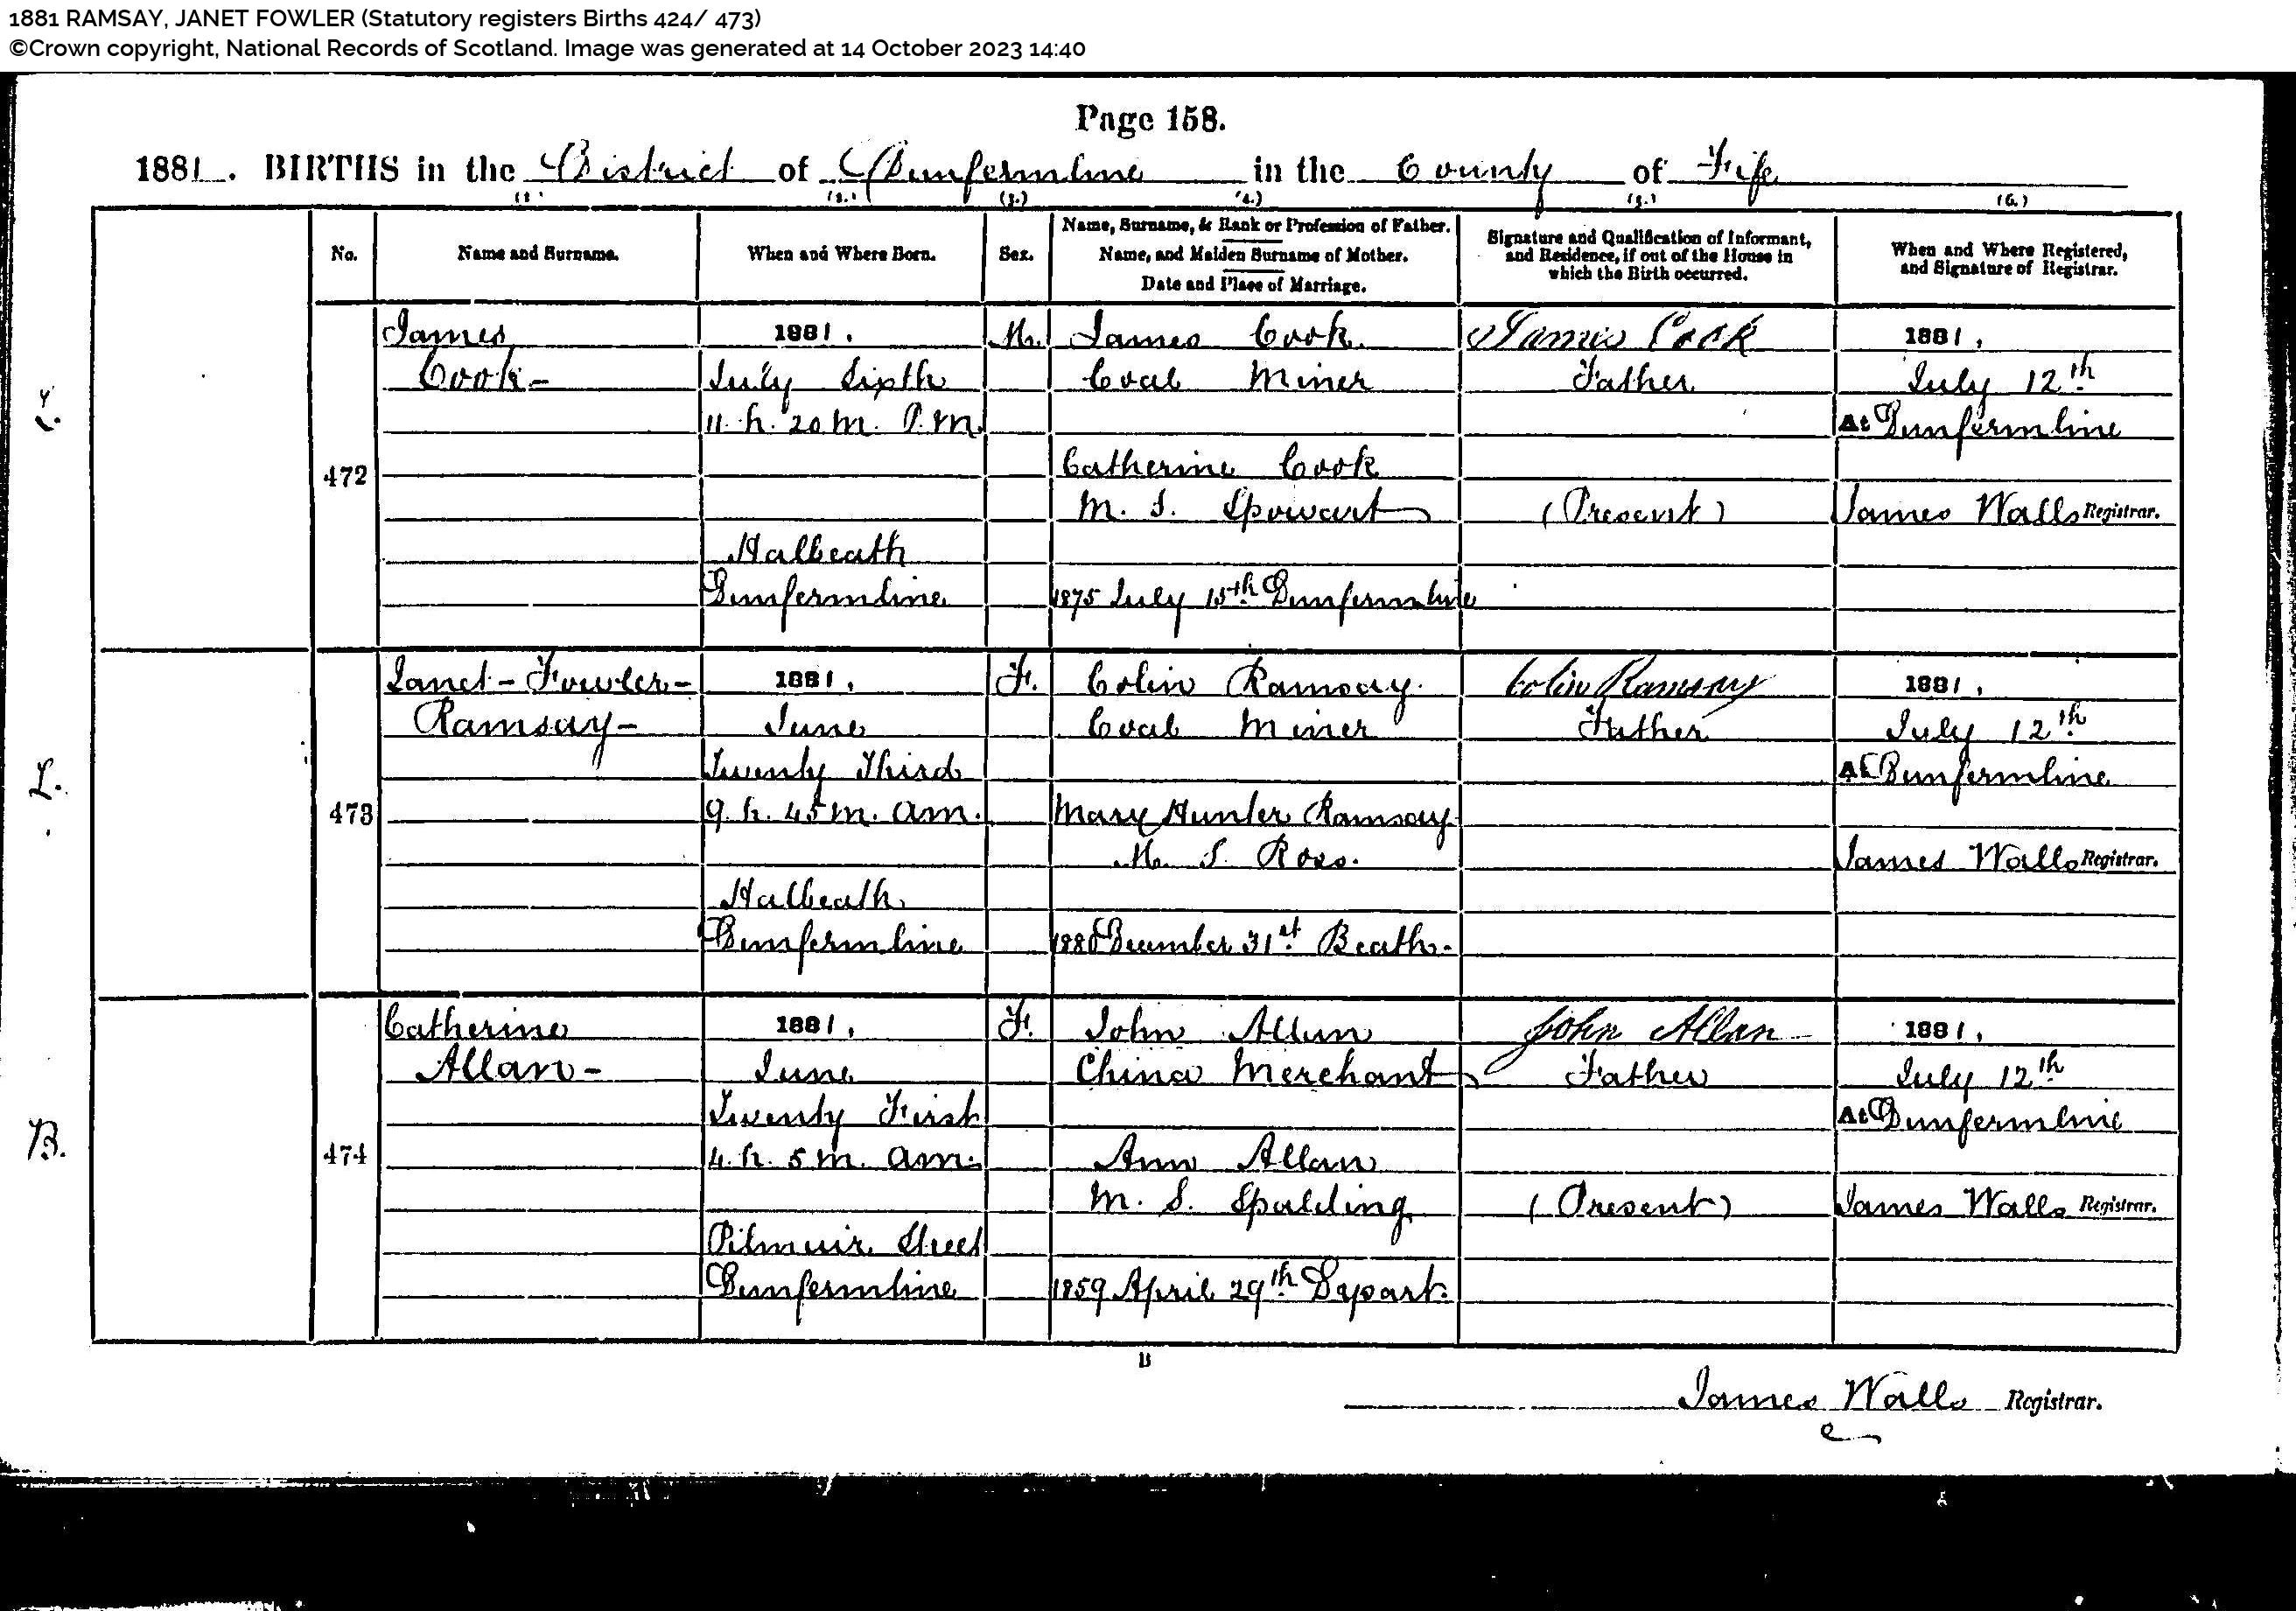 1881 RAMSAY, JANET FOWLER (Statutory registers Births 424/ 473)
©Crown copyright, National Records of Scotland. Image was generated at 14 October 2023 14:40
Page 158.
1881. BIRTHS in the District of Dunfermline in the County of Fife
(1.) (2.) (3.) (4.) (5.) (6.)
No.
Name and Surname.
When and Where Born.
Sex.
Name, Surname, & Rank or Profession of Father.
Name, and Maiden Surname of Mother.
Date and Place of Marriage.
Signature and Qualification of Informant,
and Residence, if out of the House in
which the Birth occurred.
When and Where Registered,
and Signature of Registrar.
472
James
Cook-
1881.
July Sixth
11. h. 20 m. P.M.
Halbeath
Dunfermline
M.
James Cook
Coal Miner
Catherine Cook
M. S. Spowart
1875 July 15th Dunfermline
James Cook
Father
(Present)
1881.
July 12th
At Dunfermline
James Walls Registrar.
L.
473
Janet-Fowler-
Ramsay-
1881.
June
Twenty Third
9. h. 45 m. am.
Halbeath
Dunfermline
F.
Colin Ramsay
Coal Miner
Mary Hunter Ramsay
M. S. Ross.
1880 December 31st Beath-
Colin Ramsay
Father
1881.
July 12th
At Dunfermline
James Walls Registrar.
B.
474
Catherine
Allan-
1881.
June
Twenty First
4. h. 5 m. am.
Pilmuir Street
Dunfermline
F.
John Allan
China Merchant
Ann Allan
M. S. Spalding
1859 April 29th Dysart.
John Allan
Father
(Present)
1881.
July 12th
At Dunfermline
James Walls Registrar.
B
James Walls Registrar.